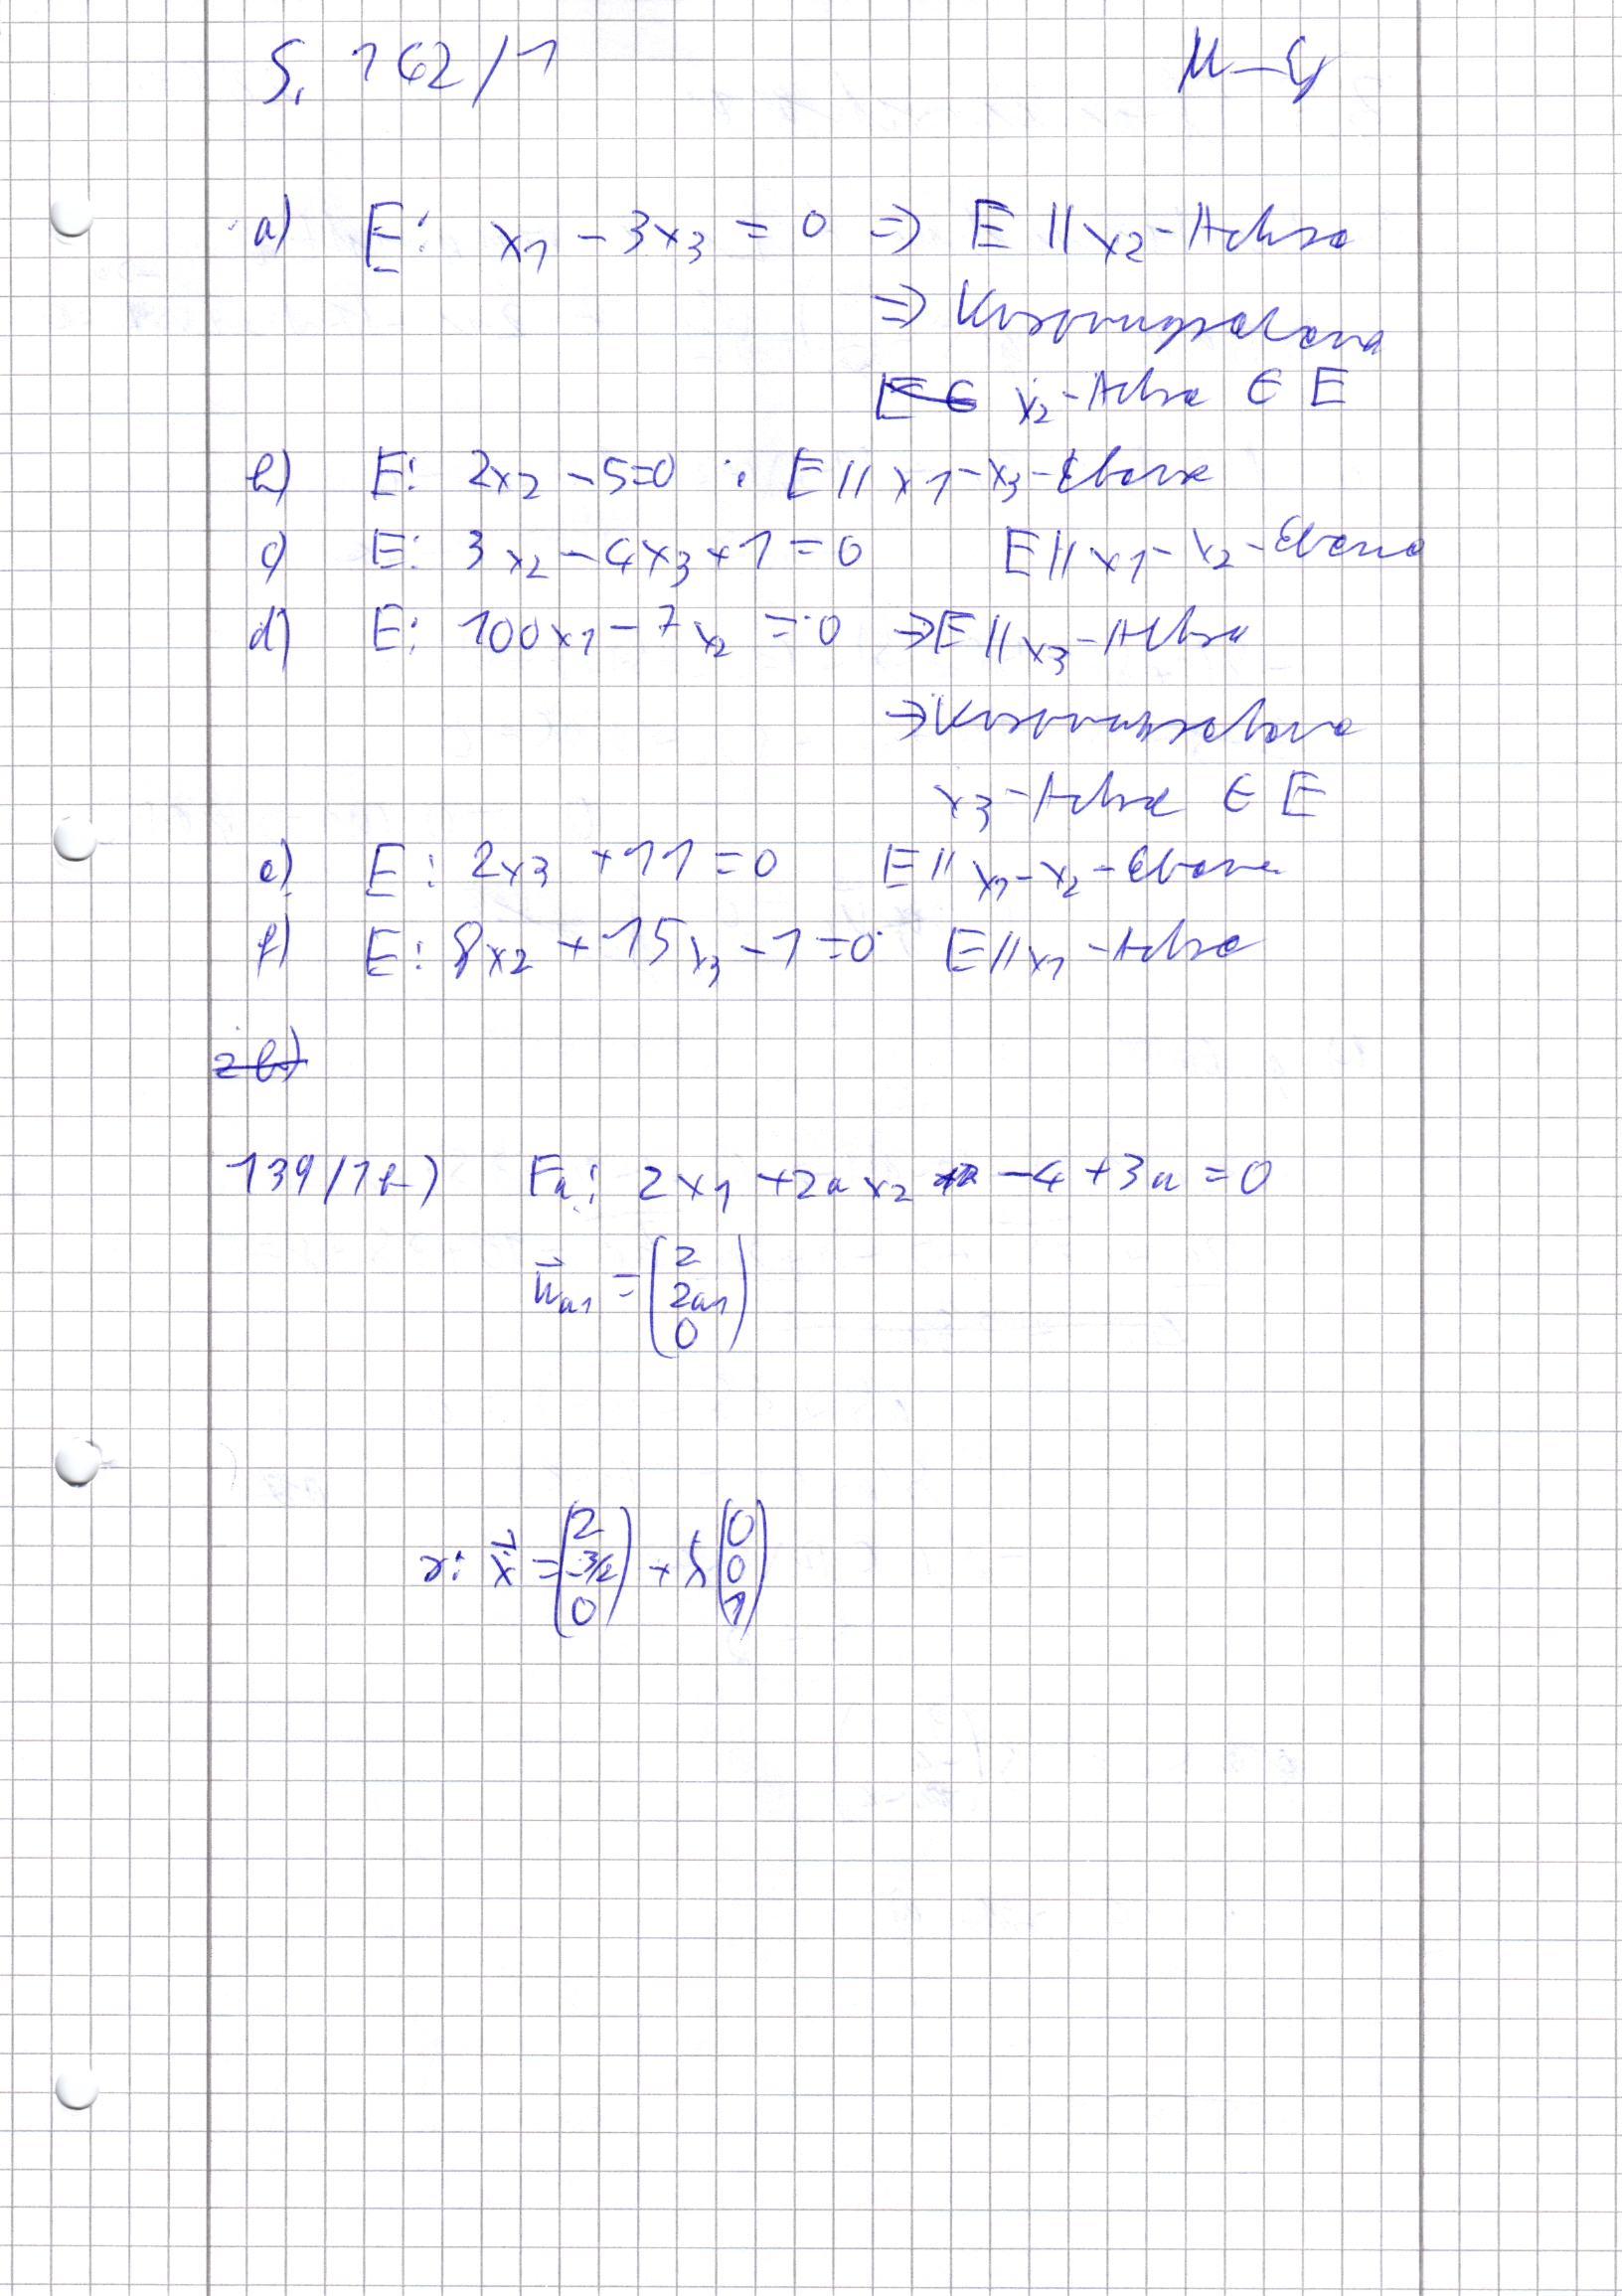 S. 162/1 M-G
a) E: x₁ - 3x₃ = 0 ⇒ E || x₂-Achse
⇒ Ursprungsebene
E ∈ x₂-Achse ∈ E
b) E: 2x₂ - 5 = 0 : E || x₁-x₃-Ebene
c) E: 3x₂ - 4x₃ + 1 = 0 E || x₁-x₂-Ebene
d) E: 100x₁ - 7x₂ = 0 ⇒ E || x₃-Achse
⇒ Ursprungsebene
x₃-Achse ∈ E
e) E: 2x₃ + 11 = 0 E || x₁-x₂-Ebene
f) E: 8x₂ + 15x₃ - 1 = 0 E || x₁-Achse
2b)
139/1b) Fₐ: 2x₁ + 2a x₂ - 4 + 3a = 0
n⃗ₐ₁ = (2 2a₁ 0)
r: x⃗ = (2 -3/2 0) + λ (0 0 1)